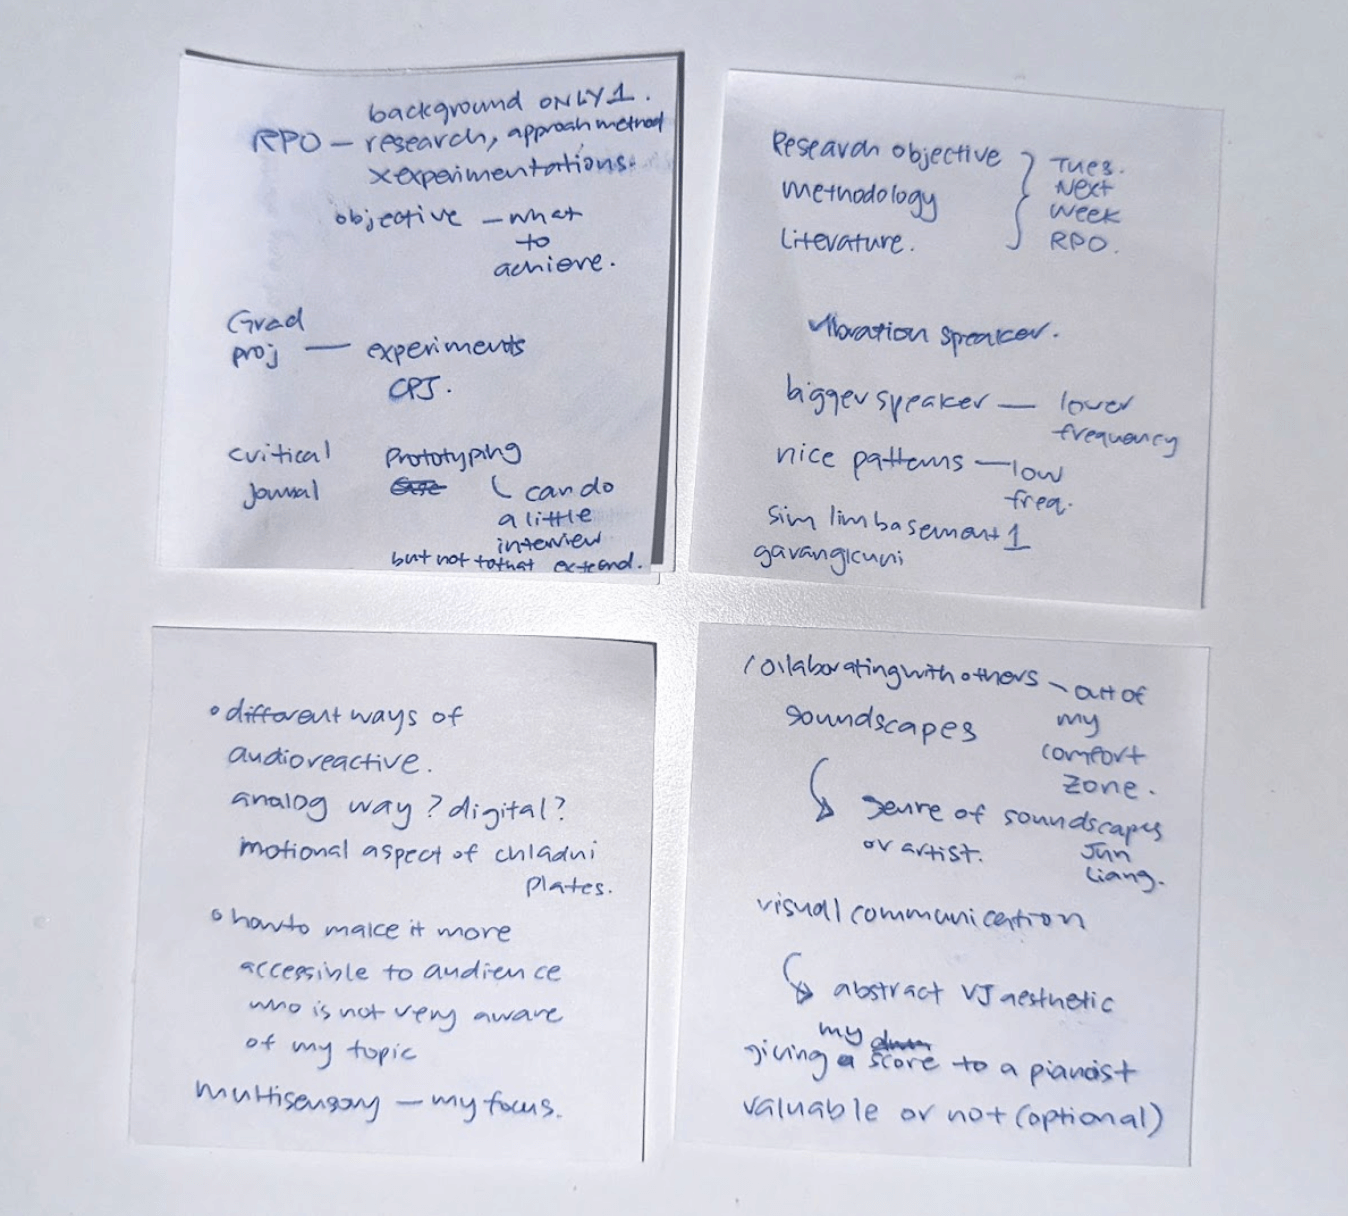 background ONLY 1.
RPO – research, approah method
x experimentations.
objective – what
to
achieve.
Grad
proj — experiments
CPJ.
critical prototyping
journal can do
a little
interview
but not to that extend.
Research objective
methodology
literature.
Tues.
Next
Week
RPO.
vibration speaker.
bigger speaker — lower
frequency
nice patterns — low
freq.
sim lim basement 1
garangkuni
• different ways of
audioreactive.
analog way? digital?
motional aspect of chladni
plates.
• how to make it more
accessible to audience
who is not very aware
of my topic
multisensory — my focus.
collaborating with others – out of
my
comfort
zone.
soundscapes
genre of soundscapes
or artist.
Jun
Liang.
visual communication
abstract VJ aesthetic
my
giving a score to a pianist
valuable or not (optional)